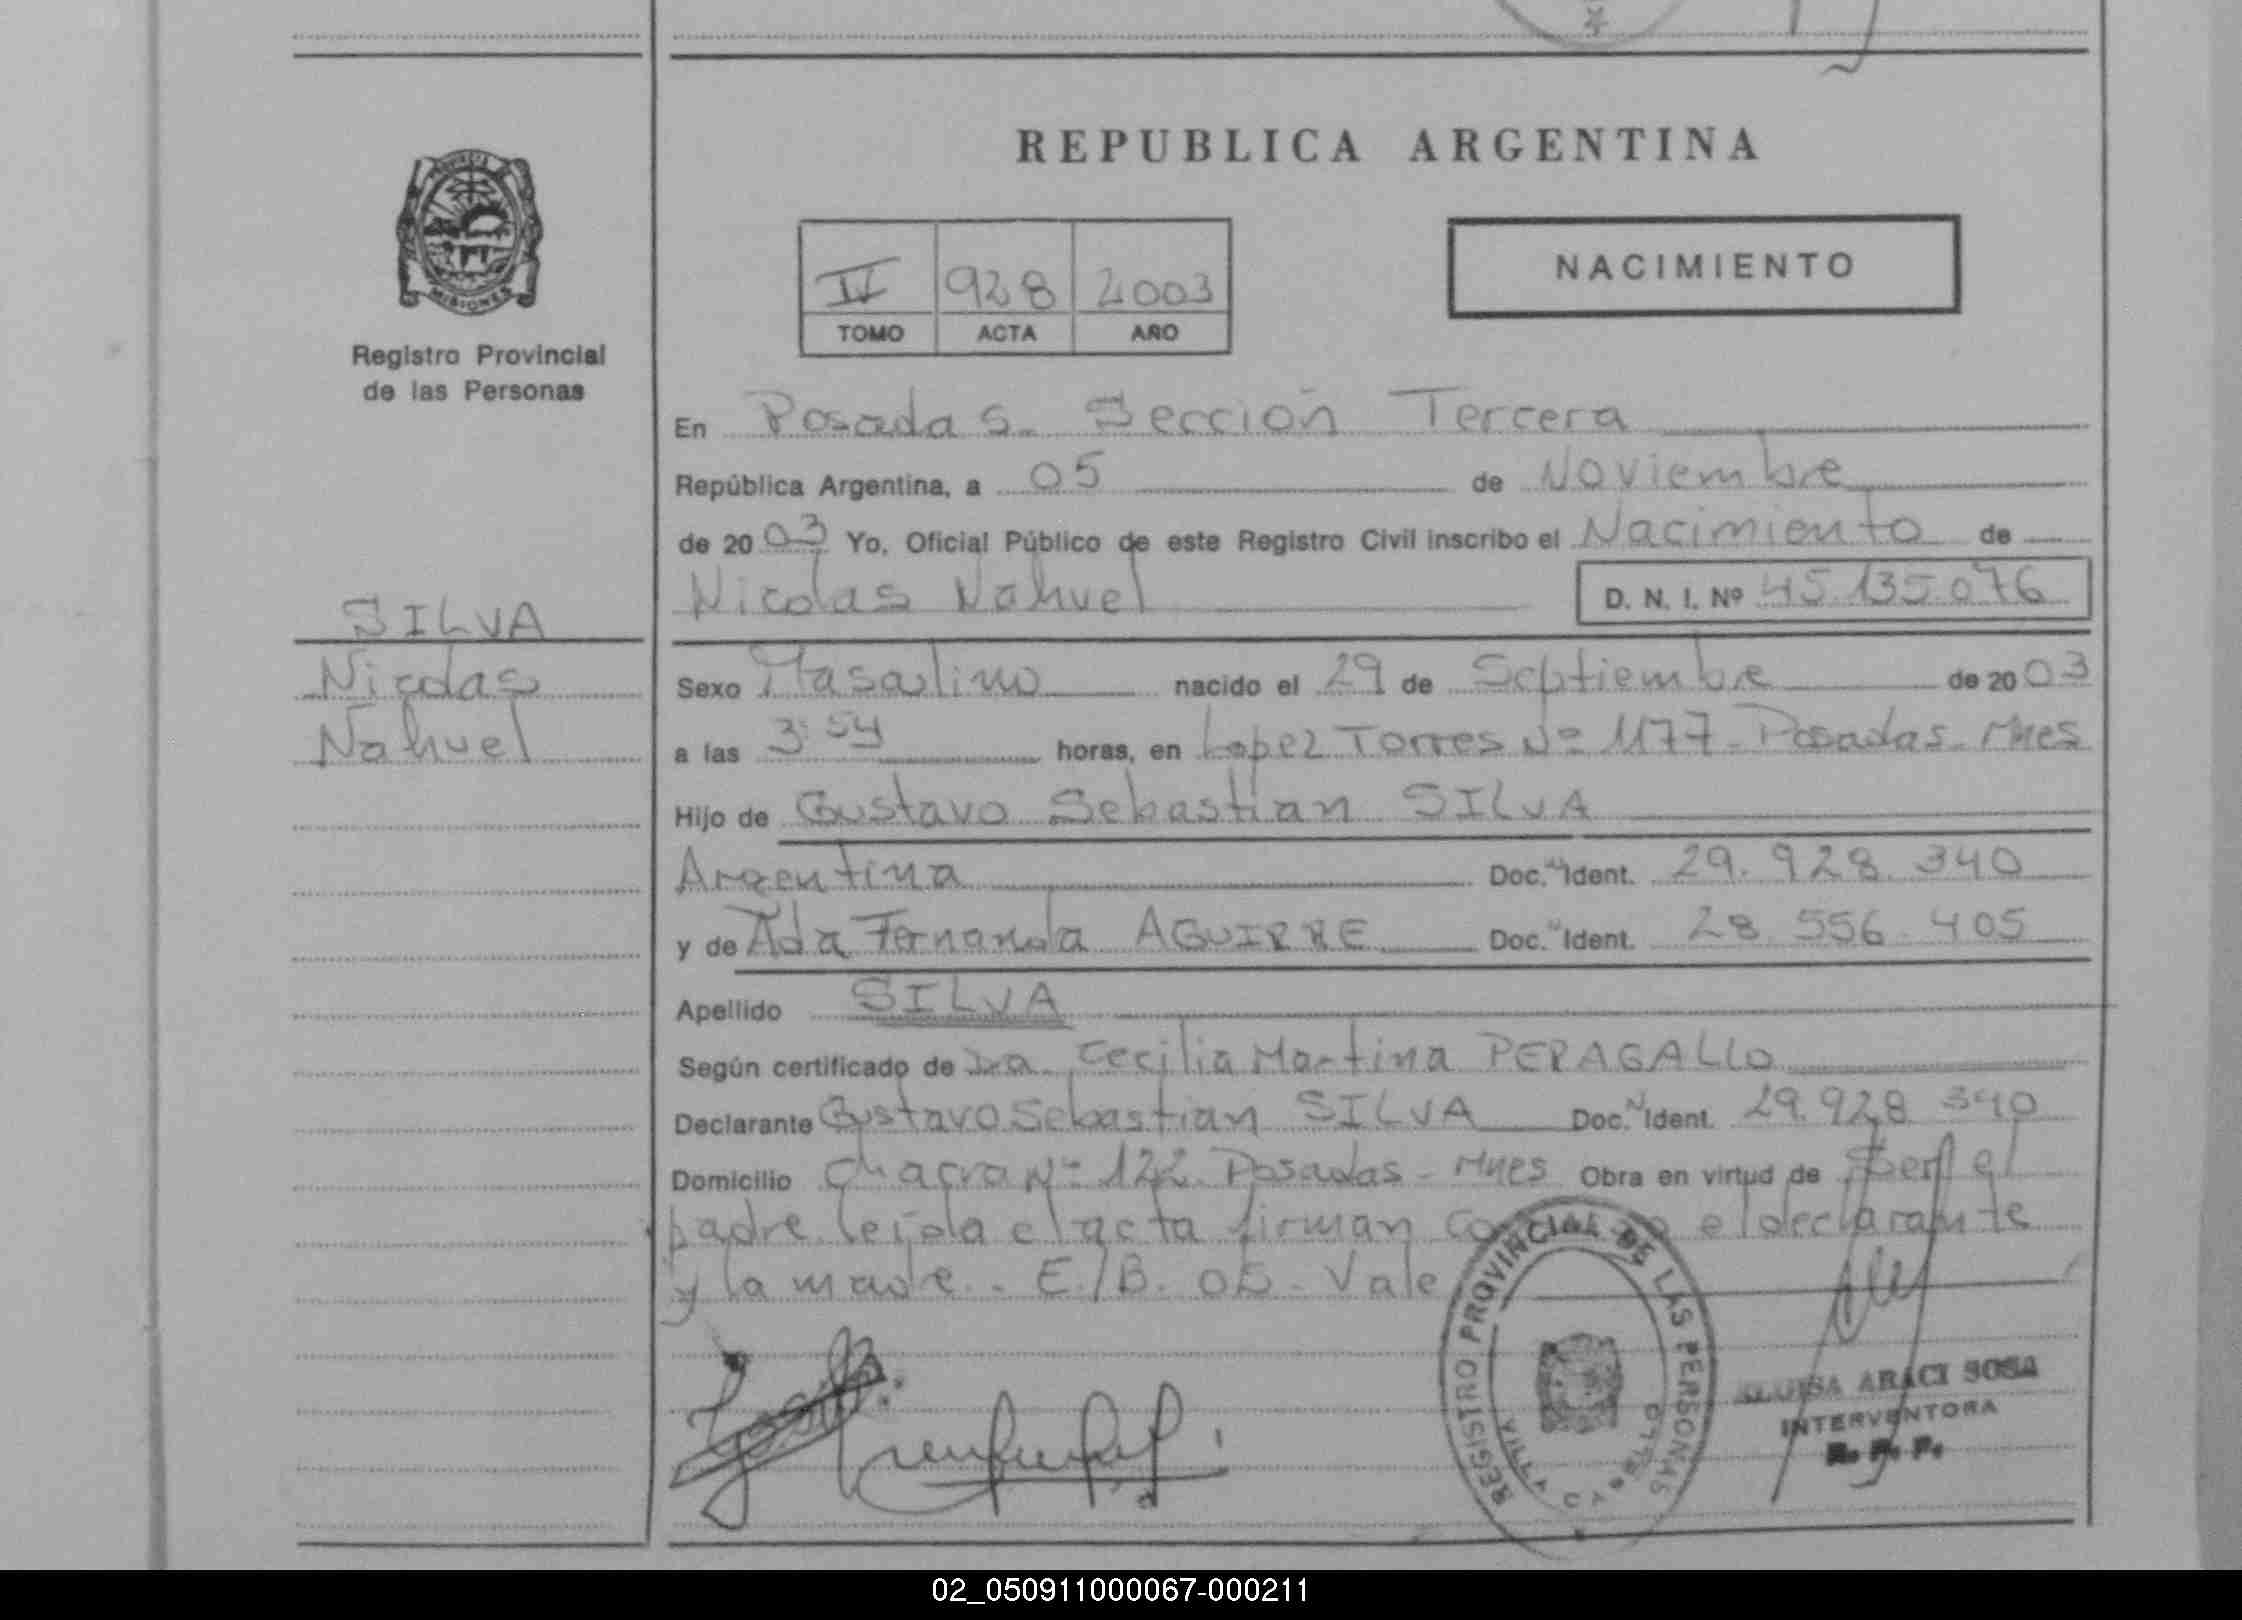 REPUBLICA ARGENTINA
PROVINCIA
MISIONES
Registro Provincial
de las Personas
II 928 2003
TOMO ACTA AÑO
NACIMIENTO
En Posadas - Sección Tercera
República Argentina, a 05 de Noviembre
de 2003 Yo, Oficial Público de este Registro Civil inscribo el Nacimiento de
Nicolas Nahuel D. N. I. Nº 45.135.076
SILVA
Nicolas
Nahuel
Sexo Masculino nacido el 29 de Septiembre de 2003
a las 3:54 horas, en Lopez Torres Nº 1177 - Posadas - Mnes
Hijo de Gustavo Sebastian SILVA
Argentina Doc. Ident. 29.928.340
y de Ada Fernanda AGUIRRE Doc. Ident. 28.556.405
Apellido SILVA
Según certificado de Dra. Cecilia Martina PERAGALLO
Declarante Gustavo Sebastian SILVA Doc. Ident. 29.928.340
Domicilio Chacra Nº 122 Posadas - Mnes Obra en virtud de Ser el
padre leida el acta firman el declarante
y la madre. - E/B. 05 - Vale
REGISTRO PROVINCIAL DE LAS PERSONAS
VILLA CABELLO
LUISA ARACI SOSA
INTERVENTORA
R. P. P.
02_050911000067-000211